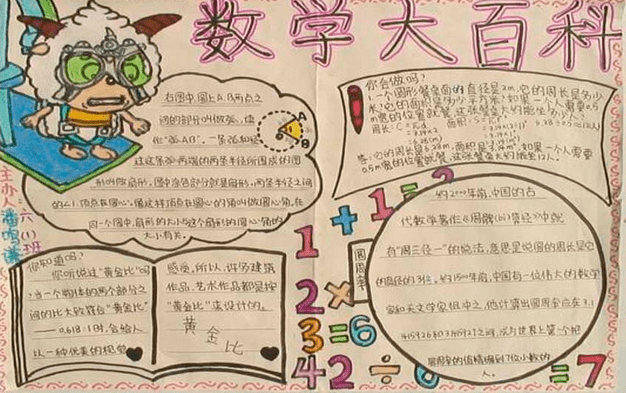 数学大百科
右图中,圆上A、B两点之
间的部分叫做弧,读
作"弧AB"。一条弧和经
过这条弧两端的两条半径所围成的图
形叫做扇形。图中涂色部分就是扇形。两条半径之间
的∠1,顶点在圆心。像这样顶点在圆心的角叫做圆心角。在
同一个圆中,扇形的大小与这个扇形的圆心角的
大小有关。
A
B
主办人:
六(1)班
你会做吗?
1.一个圆形餐桌面的直径是2m,它的周长是多少
米?它的面积是多少平方米?如果一个人需要0.5
m宽的位置就餐,这张餐桌大约能坐多少人?
答:它的周长是6.28m,面积是3.14m²,如果一个人需要
0.5m宽的位置就餐,这张餐桌大约能坐12人。
1+1=2
2×
3=6
42÷6=7
圆周率
约2000年前,中国的古
代数学著作《周髀算经》中就
有"周三径一"的说法,意思是说圆的周长是它
的直径的3倍。约1500年前,中国有一位伟大的数学
家和天文学家祖冲之。他计算出圆周率应在3.1
415926和3.1415927之间,成为世界上第一个把
圆周率的值精确到7位小数的
人。
你知道吗?
你听说过"黄金比"吗
?当一个物体的两个部分之
间的比大致符合"黄金比"
——0.618:1时,会给人
以一种优美的视觉
感受。所以,许多建筑
作品、艺术作品都是按
"黄金比"来设计的。
黄金比